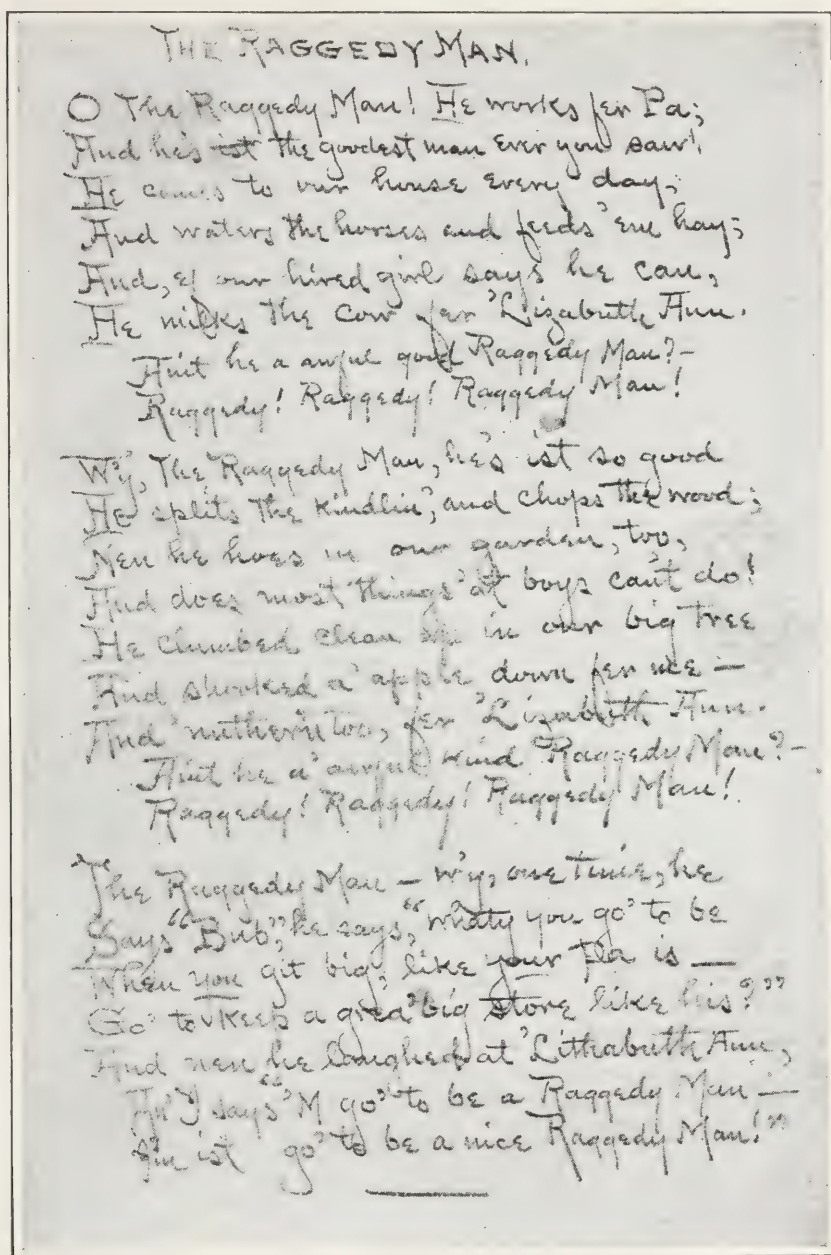 THE RAGGEDY MAN.
O The Raggedy Man! He works fer Pa;
And he's ist the goodest man ever you saw!
He comes to our house every day,
And waters the horses and feeds 'em hay;
And, ef our hired girl says he can,
He milks the cow fer 'Lizabuth Ann.
Ain't he a awful good Raggedy Man?—
Raggedy! Raggedy! Raggedy Man!
W'y, The Raggedy Man, he's ist so good
He splits the kindlin', and chops the wood;
Nen he hoes in our garden, too,
And does most things 'at boys can't do!
He clumbed clean up in our big tree
And shooked a' apple down fer me—
And 'nuther'n too, fer 'Lizabuth Ann.
Ain't he a' awful kind Raggedy Man?—
Raggedy! Raggedy! Raggedy Man!
The Raggedy Man — W'y, one time, he
Says "Bub," he says, "what you go' to be
When you git big, like your Pa is—
Go' to keep a grea' big store like his?"
And nen he laughed at 'Lithabuth Ann,
An' I says "'M go' to be a Raggedy Man—
I'm ist go' to be a nice Raggedy Man!"